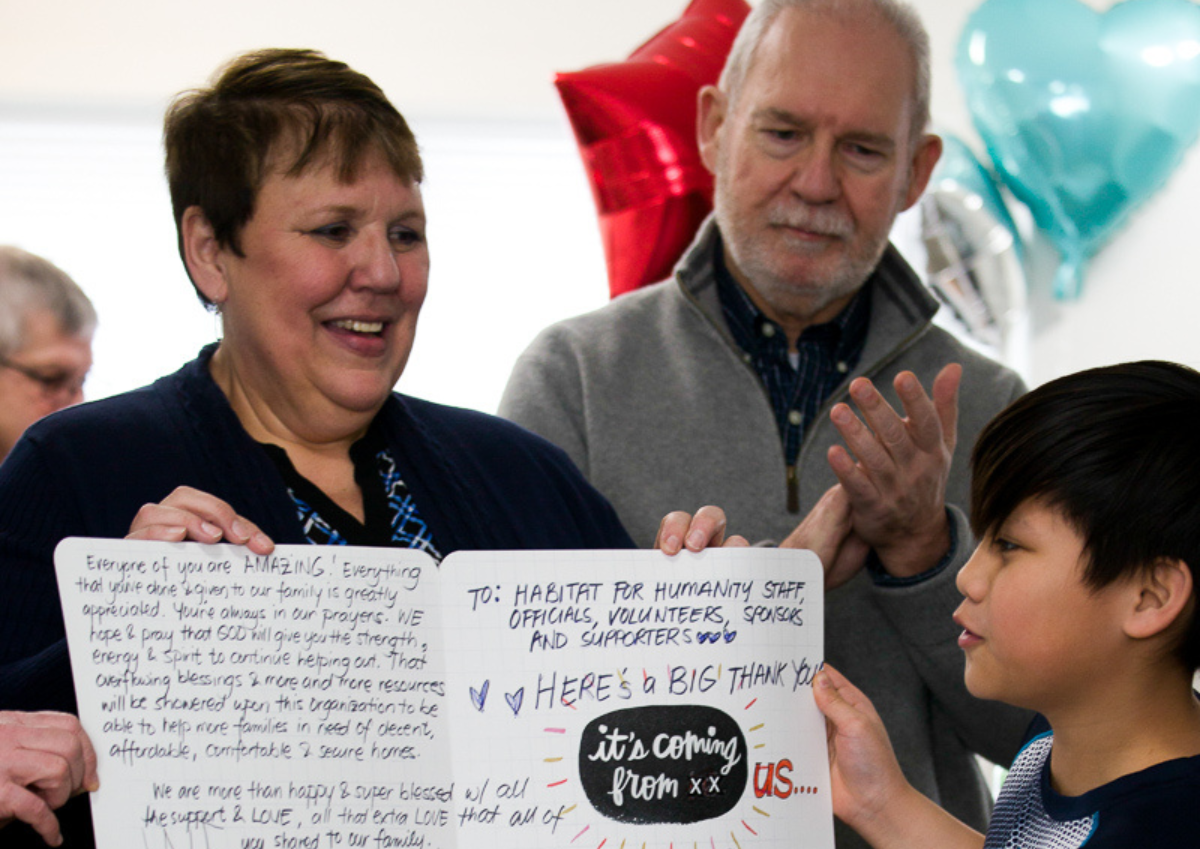 Everyone of you are AMAZING! Everything
that you've done & given to our family is greatly
appreciated. You're always in our prayers. WE
hope & pray that GOD will give you the strength,
energy & spirit to continue helping out. That
overflowing blessings & more and more resources
will be showered upon this organization to be
able to help more families in need of decent,
affordable, comfortable & secure homes.
We are more than happy & super blessed w/ all
the support & LOVE, all that extra LOVE that all of
you shared to our family.
TO: HABITAT FOR HUMANITY STAFF,
OFFICIALS, VOLUNTEERS, SPONSORS
AND SUPPORTERS
HERE's a BIG THANK YOU
it's coming
from xx us....